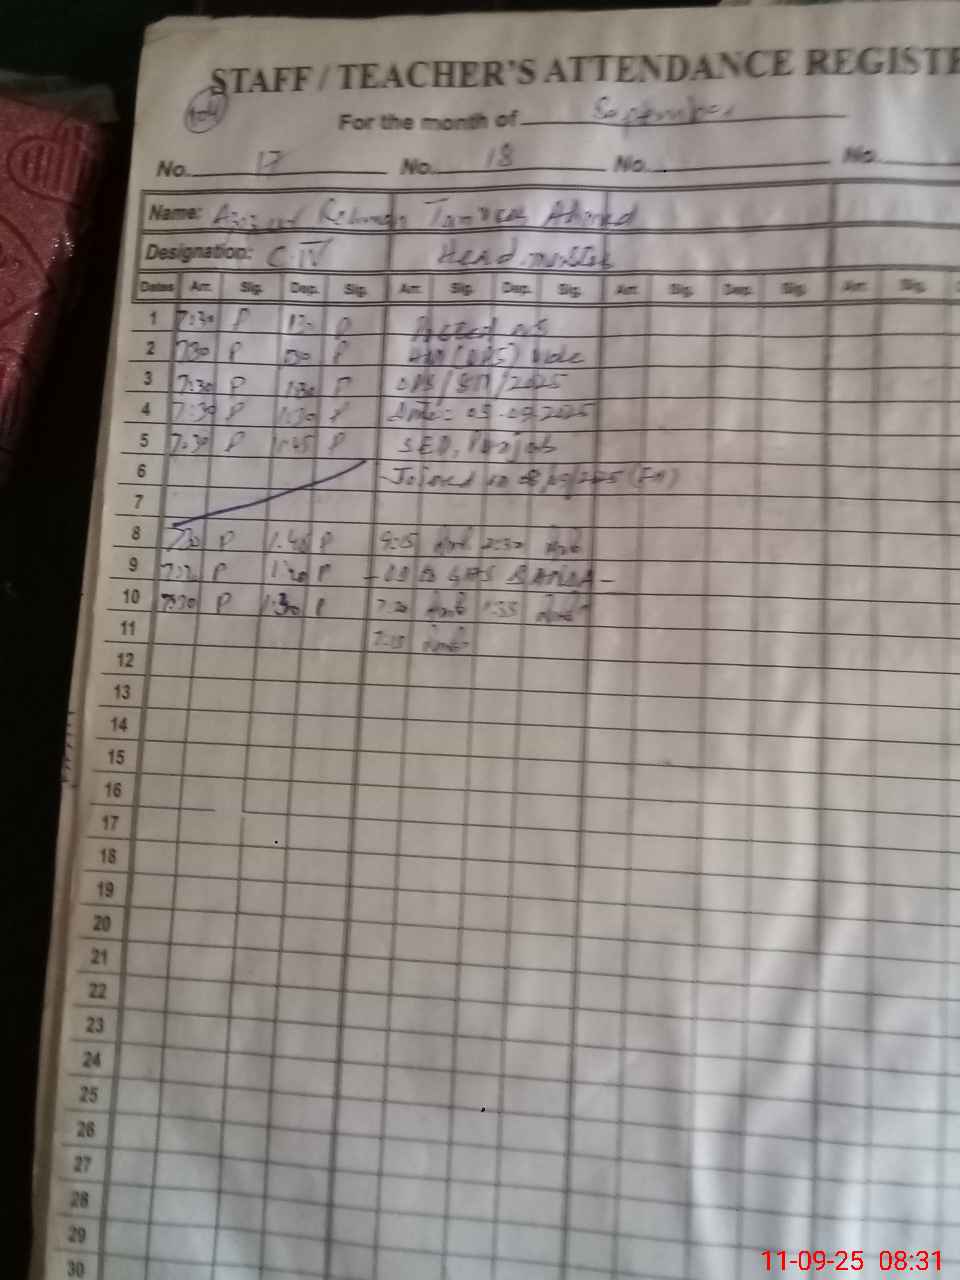 STAFF / TEACHER'S ATTENDANCE REGISTE
104
For the month of September
No. 17 No. 18 No. No.
Name: Rehman Tanveer Ahmed
Designation: C-IV Head master
Dates Arr. Sig. Dep. Sig. Arr. Sig. Dep. Sig. Arr. Sig. Dep. Sig. Arr. Sig.
1 7:30 P 1:30 P Posted as
2 7:30 P 1:30 P HM (OPS) vide
3 7:30 P 1:30 P /2025
4 7:30 P 1:30 P Date: 05.09.2025
5 7:30 P 1:45 P SED, Punjab
6 Joined on 08/09/2025 (FN)
7
8 7:30 P 1:45 P 9:15 2:30
9 P P
10 7:30 P 1:30 P 7:20 1:35
11 7:15
12
13
14
15
16
17
18
19
20
21
22
23
24
25
26
27
28
29
30
11-09-25 08:31